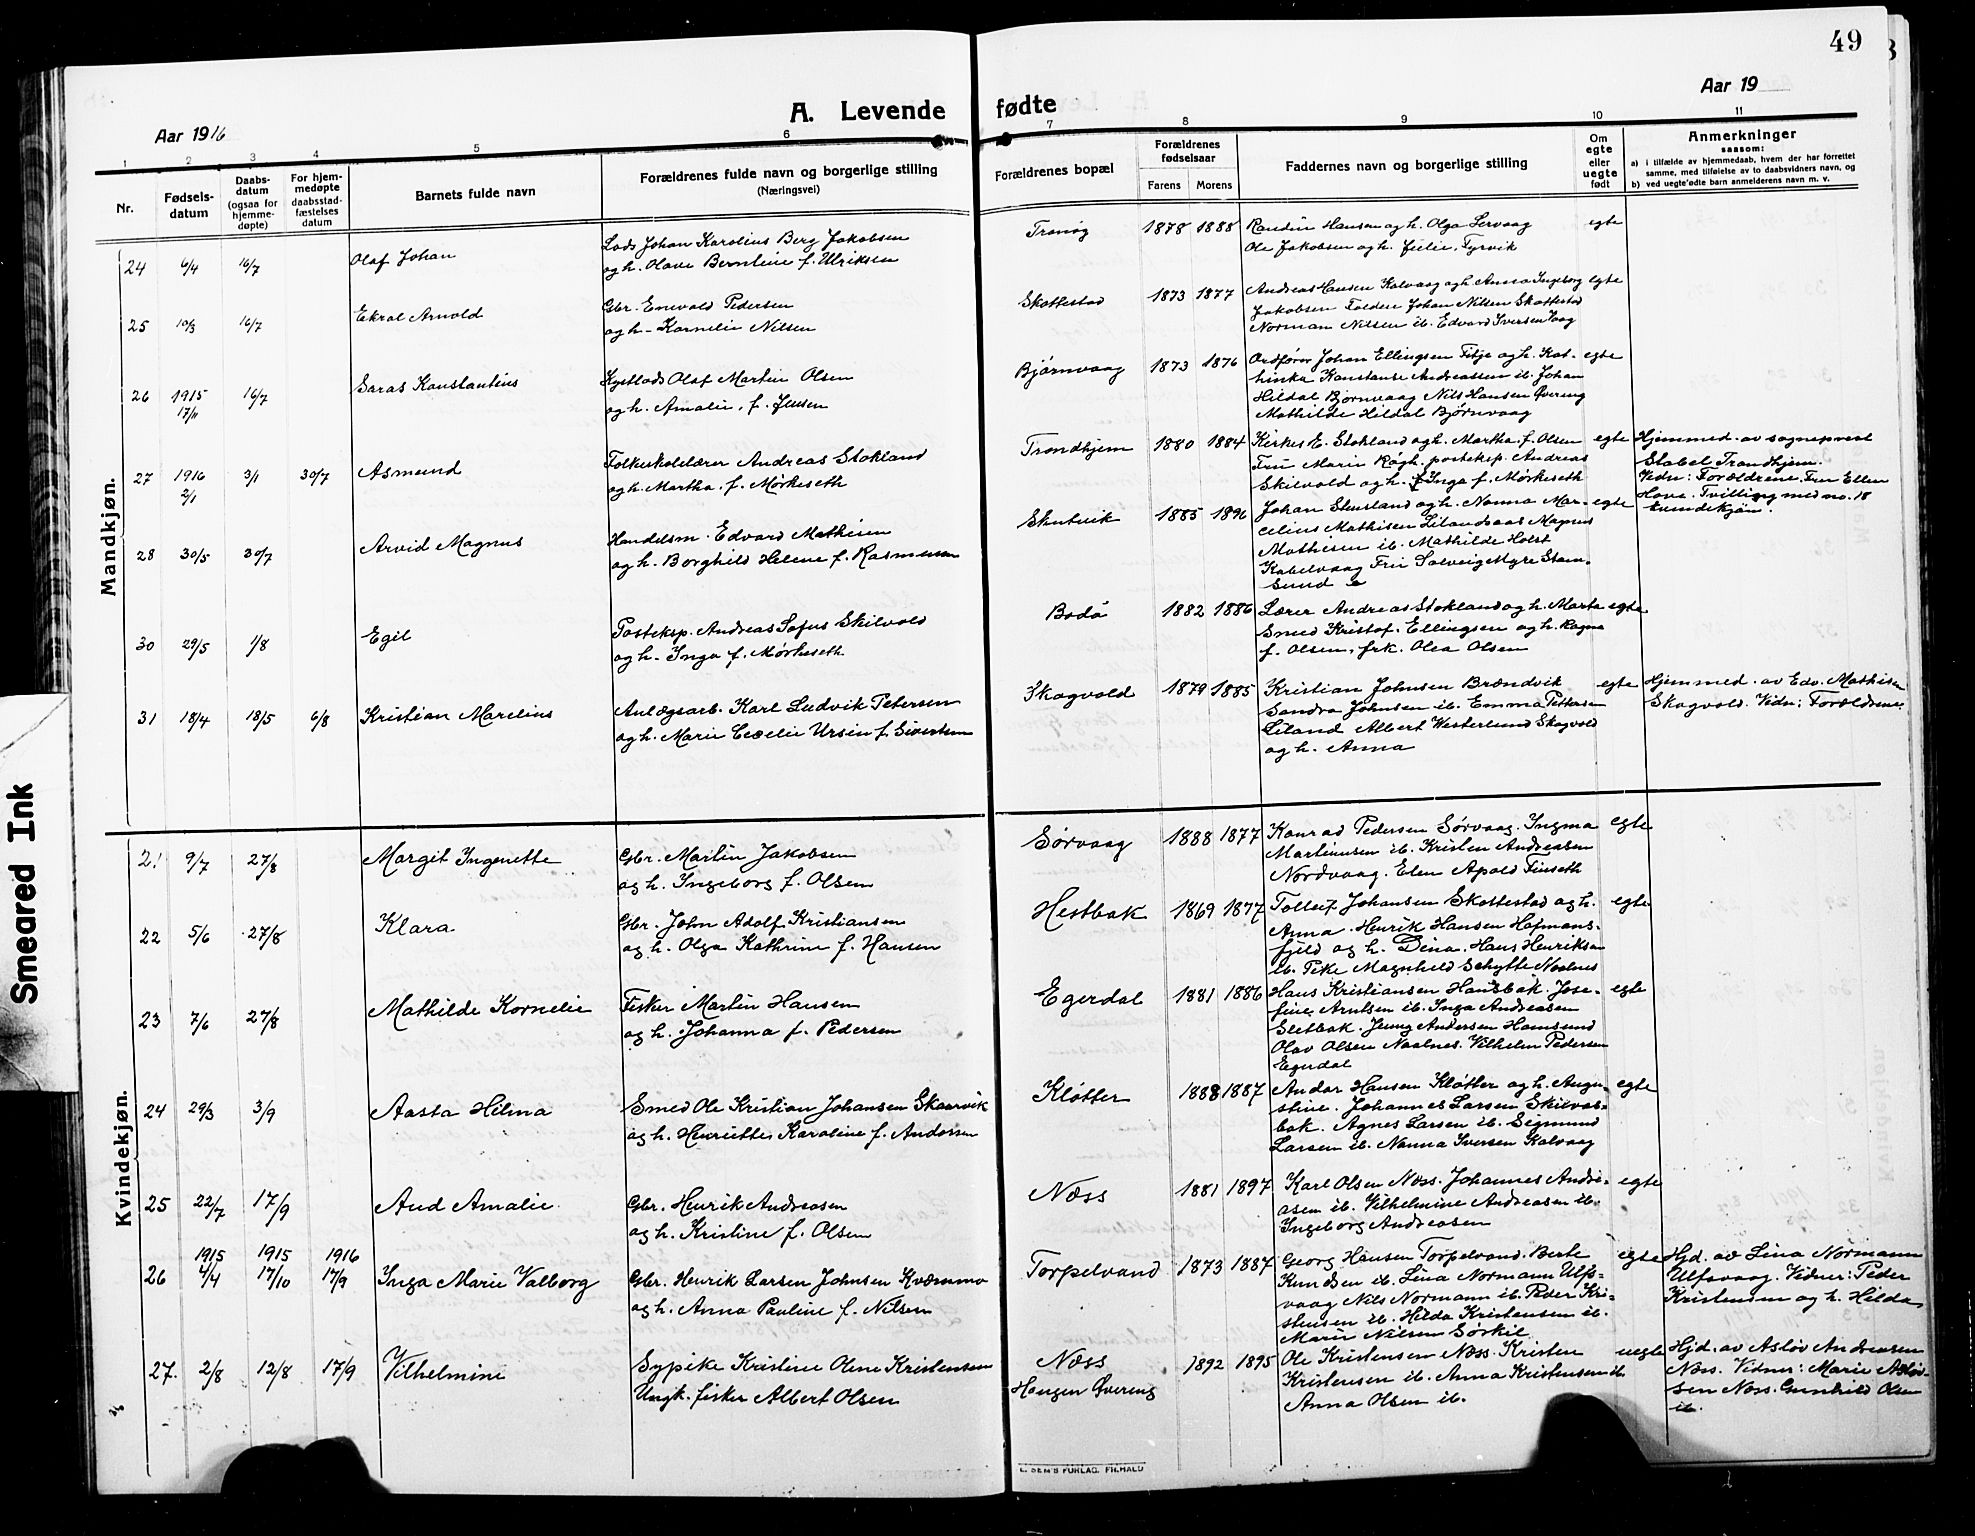 49
Aar 1916
A. Levende
fødte
Aar 19
1 2 3 4 5 6 7 8 9 10 11
Nr.
Fødsels-
datum
Daabs-
datum
(ogsaa for
hjemme-
døpte)
For hjem-
medøpte
daabsstad-
fæstelses
datum
Barnets fulde navn
Forældrenes fulde navn og borgerlige stilling
(Næringsvei)
Forældrenes bopæl
Forældrenes
fødselsaar
Farens Morens
Faddernes navn og borgerlige stilling
Om
egte
eller
uegte
født
Anmerkninger
saasom:
a) i tilfælde av hjemmedaab, hvem der har forrettet
samme, med tilføielse av to daabsvidners navn, og
b) ved uegte fødte barn anmelderens navn m. v.
Mandkjøn.
24 6/4 16/7 Olaf Johan
Lods Johan Karolius Berg Jakobsen
og h. Olave Berntine f. Ulriksen
Tranøy 1878 1888
Randin Hansen og h. Olga Lervaag
Ole Jakobsen og h. Julie, Tyrvik
egte
25 10/3 16/7 Ekral Arnold
Gbr. Enevold Pedersen
og h. Kornelie Nilsen
Skottestad 1873 1877
Andreas Hansen Kalvaag og h. Anna Ingeborg
Jakobsen Folden Johan Nilsen Skottestad
Norman Nilsen ib. Edvard Iversen Vaag
egte
26 1915 17/11 16/7 Saras Konstantius
Kystlods Olaf Martin Olsen
og h. Amalie, f. Jensen
Bjørnvaag 1873 1876
Ordfører Johan Ellingsen Fitje og h. Kat-
hinka Konstanse Andreassen ib. Johan
Hildal Bjørnvaag Nils Hansen Øvereng
Mathilde Hildal Bjørnvaag
egte
27 1916 2/1 3/1 30/7 Asmund
Folkeskolelærer Andreas Stokland
og h. Martha, f. Mørkeseth
Trondhjem 1880 1884
Kirkes E. Stokland og h. Martha f. Olsen
Fru Marie Røgh. posteksp. Andreas
Skilvold og h. Inga f. Mørkeseth
egte
Hjemmed. av sogneprest
Stabel Trondhjem.
Vidn: Forældrene. Fru Ellen
Hove. Tvilling med no. 18
kvindekjøn.
28 30/5 30/7 Arvid Magnus
Handelsm. Edvard Mathisen
og h. Borghild Helene f. Rasmussen
Skutvik 1885 1896
Johan Stensland og h. Nanna Mar-
celius Mathisen Lilandsaas Magnus
Mathisen ib. Mathilde Holst
Kabelvaag Fru Solveig Myre Stam-
sund
egte
30 29/5 1/8 Egil
Posteksp. Andreas Sofus Skilvold
og h. Inga f. Mørkeseth
Bodø 1882 1886
Lærer Andreas Stokland og h. Marta
Smed Kristof. Ellingsen og h. Ragna
f. Olsen, frk. Olea Olsen
egte
31 18/4 18/5 6/8 Kristian Marelius
Anlægsarb. Karl Ludvik Petersen
og h. Marie Cecelie Ursin f. Sivertsen
Skogvold 1879 1885
Kristian Johnsen Brændvik
Sandra Johnsen ib. Emma Pettersen
Liland Albert Westerlund Skogvold
og h. Anna
egte
Hjemmed. av Edv. Mathisen
Skogvold. Vidn: Forældrene
Kvindekjøn.
21 9/7 27/8 Margit Ingenette
Gbr. Martin Jakobsen
og h. Ingeborg f. Olsen
Sørvaag 1888 1877
Konrad Pedersen Sørvaag. Ingma
Martinusen ib. Kristen Andreasen
Nordvaag. Elen Apold Finseth
egte
22 5/6 27/8 Klara
Gbr. John Adolf Kristiansen
og h. Olga Kathrine f. Hansen
Hestbak 1869 1877
Tollef Johansen Skottestad og h.
Anna. Henrik Hansen Hafmans-
fjeld og h. Dina. Hans Henriksen
ib. Pike Magnhild Schytte Naalnes
egte
23 7/6 27/8 Mathilde Kornelie
Fisker Martin Hansen
og h. Johanna f. Pedersen
Egerdal 1881 1886
Hans Kristiansen Hansbak. Jose-
fine Arntsen ib. Inga Andreasen
Sletbak. Jenny Andersen Hamsund
Olav Olsen Naalnes. Vilhelm Pedersen
Egerdal
egte
24 29/3 3/9 Aasta Hilma
Smed Ole Kristian Johansen Skaarvik
og h. Henriette Karoline f. Andersen
Kløtter 1888 1887
Andor Hansen Kløtter og h. Augu-
stine. Johannes Larsen Skilvas-
bak. Agnes Larsen ib. Sigmund
Larsen ib. Nanna Iversen Kalvaag
egte
25 22/7 17/9 Aud Amalie
Gbr. Henrik Andreasen
og h. Kristine f. Olsen
Næss 1881 1897
Karl Olsen Næss. Johannes Andre-
asen ib. Vilhelmine Andreasen ib.
Ingeborg Andreasen
egte
26 1915 4/4 1915 17/10 1916 17/9 Inga Marie Valborg
Gbr. Henrik Larsen Johnsen Kvæmmo
og h. Anna Pauline f. Nilsen
Torpelvand 1873 1887
Georg Hansen Torpelvand. Berte
Knudsen ib. Lina Normann Ulfs-
vaag Nils Normann ib. Peder Kri-
stensen ib. Hilda Kristensen ib.
Marie Nilsen Sørkil
egte
Hjd. av Lina Normann
Ulfsvaag. Vidner: Peder
Kristensen og h. Hilda
27. 2/8 12/8 17/9 Vilhelmine
Sypike Kristine Oline Kristensen
Ungk. fisker Albert Olsen
Næss
Haugen Øvereng
1892 1895
Ole Kristensen Næss. Kristen
Kristensen ib. Anna Kristensen ib
Anna Olsen ib.
uegte
Hjd. av Asløv Andreasen
Næss. Vidner: Marie Asløv-
sen Næss. Gunhild Olsen
ib.
E. SEM'S FORLAG. FR.HALD
Smeared Ink